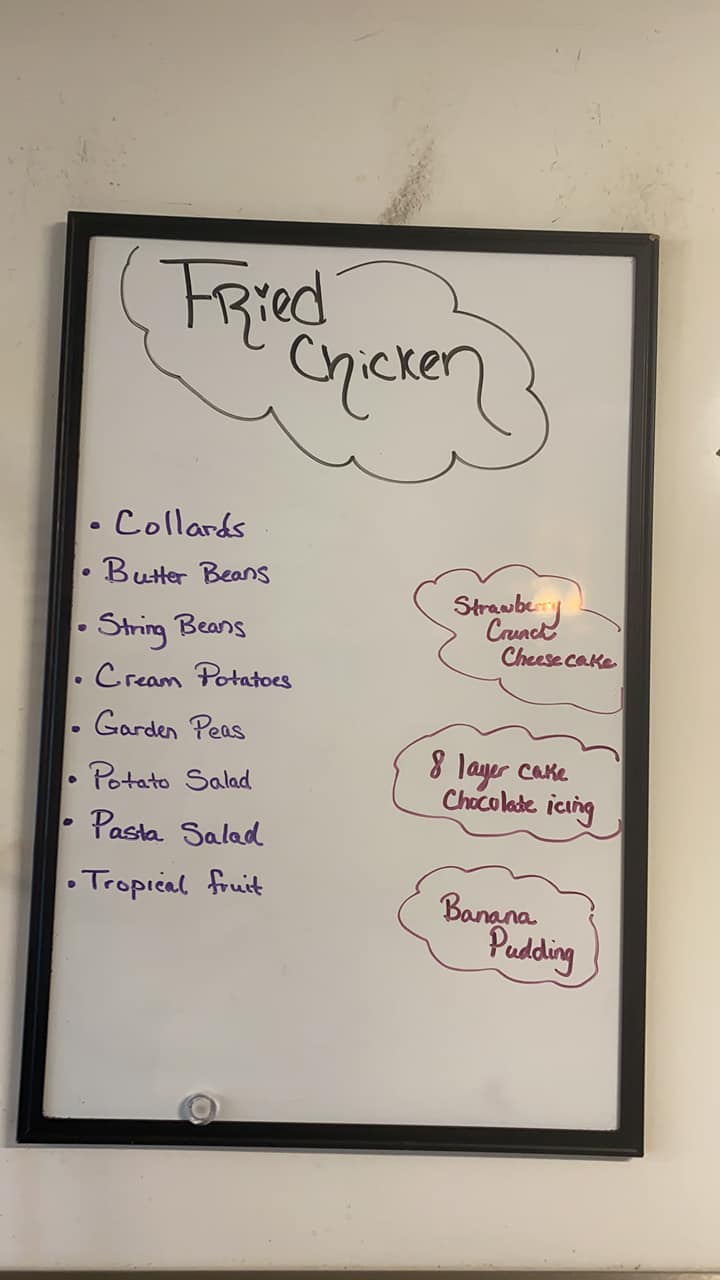 Fried
Chicken
• Collards
• Butter Beans
• String Beans
• Cream Potatoes
• Garden Peas
• Potato Salad
• Pasta Salad
• Tropical fruit
Strawberry
Crunch
Cheesecake
8 layer cake
Chocolate icing
Banana
Pudding